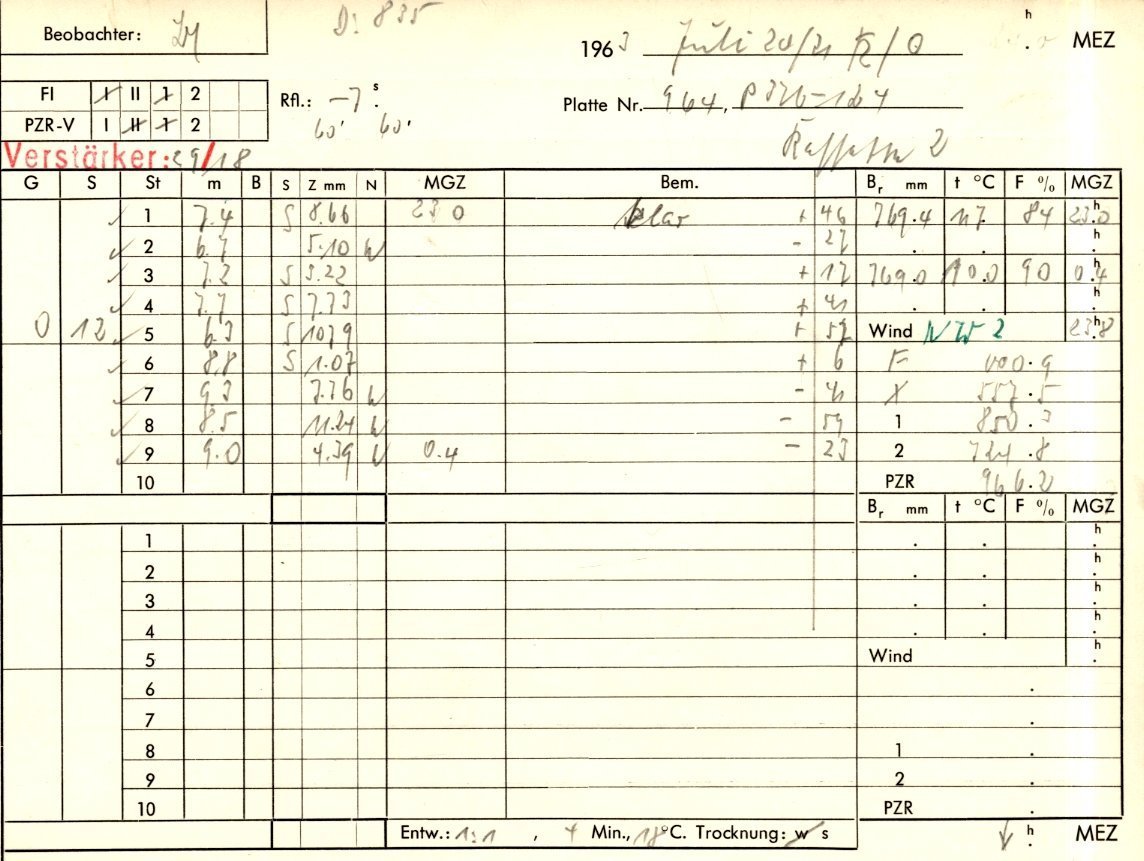 D: 835 h
Beobachter: 1963 Juli 20/21 /0 . MEZ
FI I II 1 2 Rfl.: -7 s. Platte Nr. 964,
PZR-V I II 1 2 60' 60'
Verstärker: 29/18 2
G S St m B S Z mm N MGZ Bem. Br mm t °C F % MGZ
1 7.4 S 8.66 23 0 klar + 46 769.4 11.7 84 23.0 h
2 6.7 5.10 N - 27 . . h.
3 7.2 S 3.22 + 17 769.0 10.0 90 0.4 h
4 7.7 S 7.73 + 41 . . h.
0 12 5 6.3 S 10.79 + 57 Wind NW 2 23.8 h
6 8.8 S 1.07 + 6 F 000.9
7 9.3 7.76 N - 41 X 557.5
8 8.5 11.24 N - 59 1 850.3
9 9.0 4.39 N 0.4 - 23 2 724.8
10 PZR 966.2
Br mm t °C F % MGZ
1 . . h.
2 . . h.
3 . . h.
4 . . h.
5 Wind h.
6 .
7 .
8 1 .
9 2 .
10 PZR .
Entw.: 1:1 , 4 Min., 18°C. Trocknung: w s h. MEZ